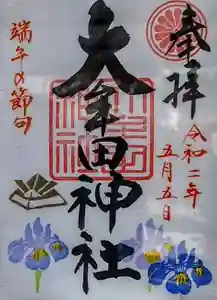 奉拝
令和二年
五月五日
大牟田神社
端午の節句